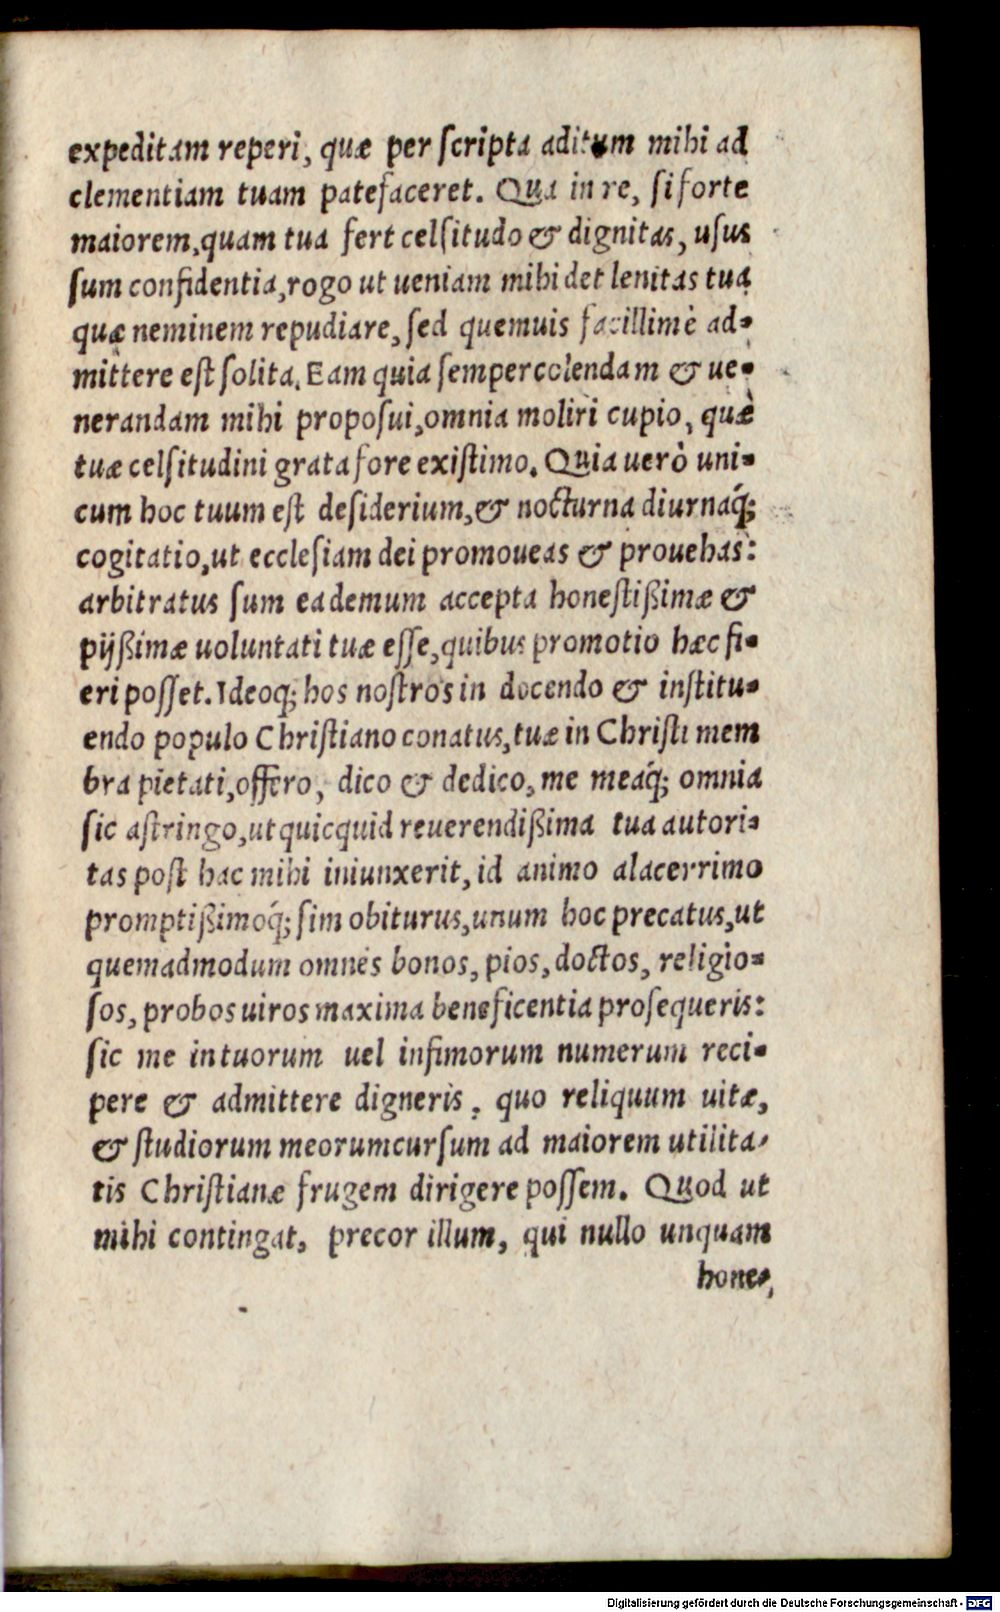 expeditam reperi, quæ per ſcripta aditum mihi ad
clementiam tuam patefaceret. Qua in re, ſi forte
maiorem, quam tua fert celſitudo & dignitas, uſus
ſum confidentia, rogo ut ueniam mihi det lenitas tua
quæ neminem repudiare, ſed quemuis facillimè ad-
mittere eſt ſolita. Eam quia ſemper colendam & ue-
nerandam mihi propoſui, omnia moliri cupio, quæ
tuæ celſitudini grata fore exiſtimo. Quia uerò uni-
cum hoc tuum eſt deſiderium, & nocturna diurnaq́;
cogitatio, ut eccleſiam dei promoueas & prouehas:
arbitratus ſum ea demum accepta honeſtißimæ &
pijßimæ uoluntati tuæ eſſe, quibus promotio hæc fi-
eri poſſet. Ideoq; hos noſtros in docendo & inſtitu-
endo populo Chriſtiano conatus, tuæ in Chriſti mem
bra pietati, offero, dico & dedico, me meaq́; omnia
ſic aſtringo, ut quicquid reuerendißima tua autori-
tas poſt hac mihi iniunxerit, id animo alacerrimo
promptißimoq́; ſim obiturus, unum hoc precatus, ut
quemadmodum omnes bonos, pios, doctos, religio-
ſos, probos uiros maxima beneficentia proſequeris:
ſic me in tuorum uel infimorum numerum reci-
pere & admittere digneris, quo reliquum uitæ,
& ſtudiorum meorum curſum ad maiorem utilita-
tis Chriſtianæ frugem dirigere poſſem. Quod ut
mihi contingat, precor illum, qui nullo unquam
hone-
Digitalisierung gefördert durch die Deutsche Forschungsgemeinschaft - DFG